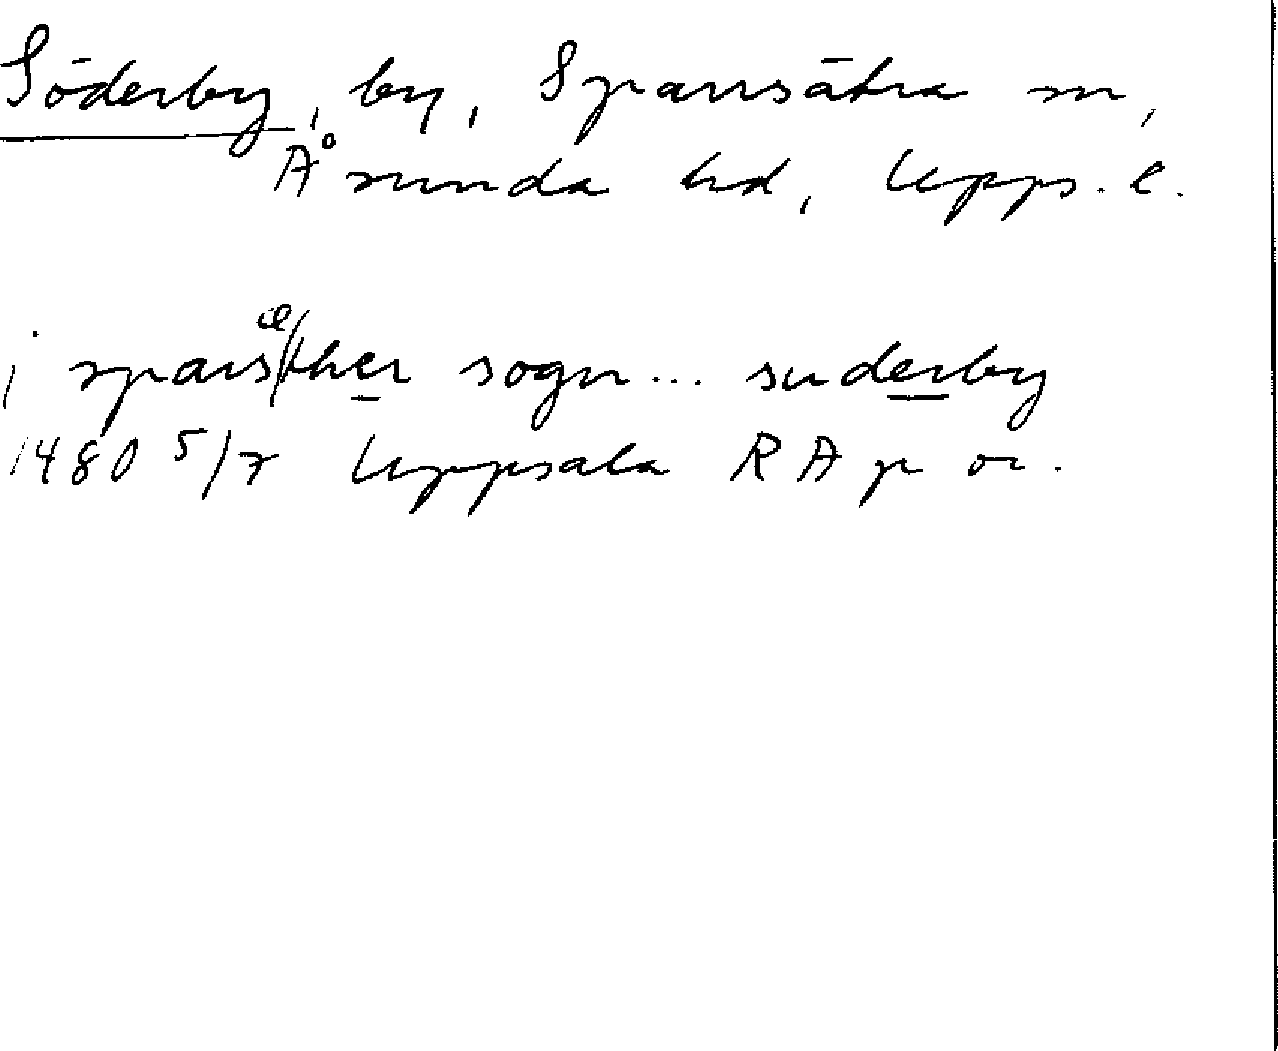 Söderby, by, Sparrsätra sn,
Åsunda hd, Upps. l.
j sparsæther sogn... suderby
1480 5/7 Uppsala RA p or.